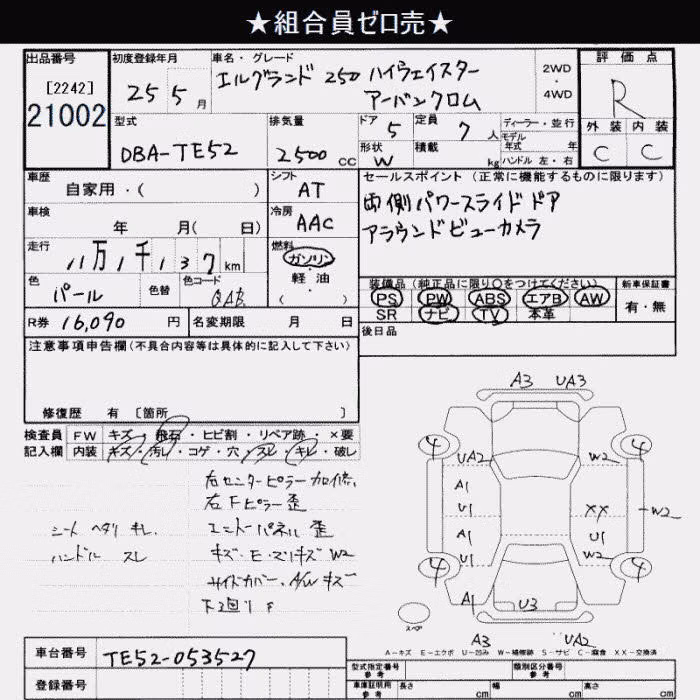 ★組合員ゼロ売★
出品番号
[2242]
21002
初度登録年月
25 5 月
車名・グレード
エルグランド 250 ハイウェイスター
アーバンクロム
2WD
・
4WD
評価点
R
外装 内装
C C
型式
DBA-TE52
排気量
2500 CC
ドア 5
定員 7 人
形状 W
積載 kg
ディーラー・並行
モデル年式 年
ハンドル 左・右
車歴
自家用・( )
シフト AT
車検
年 月( 日)
冷房 AAC
走行
11万1千137 km
燃料
ガソリン
軽油
( )
色
パール
色替
色コード
QAB
R券 16,090 円
名変期限 月 日
セールスポイント(正常に機能するものに限ります)
両側パワースライドドア
アラウンドビューカメラ
装備品(純正品に限り○をつけてください)
PS PW ABS エアB AW
SR ナビ TV 本革
新車保証書
有・無
後日品
注意事項申告欄(不具合内容等は具体的に記入して下さい)
修復歴 有 [箇所 ]
検査員記入欄
FW キズ・飛石・ヒビ割・リペア跡・×要
内装 キズ・汚レ・コゲ・穴・スレ・キレ・破レ
右センターピラー
右Fピラー歪
エンドパネル歪
キズ・E・スリキズ W2
サイドカバー、A/Wキズ
下廻り
シート ヘタリ キレ
ハンドル スレ
A3 UA3
4 4
UA2 W2
A1
U1 XX W2
A1 U1
U1 W2
4 4
A1 U3
スペア
A3 UA2
A-キズ E-エクボ U-凹み W-補修跡 S-サビ C-腐食 XX-交換済
車台番号 TE52-053527
登録番号
型式指定番号
参考
類別区分番号
参考
車庫証明用
参考
長さ cm
幅 cm
高さ cm